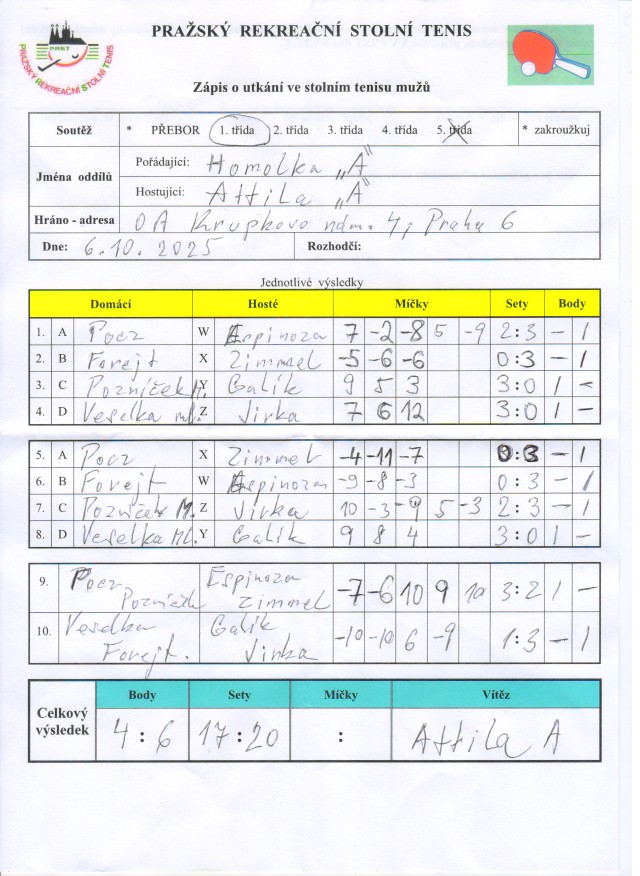 PRAŽSKÝ REKREAČNÍ STOLNÍ TENIS
PRST
PRAŽSKÝ REKREAČNÍ STOLNÍ TENIS
Zápis o utkání ve stolním tenisu mužů
Soutěž * PŘEBOR 1. třída 2. třída 3. třída 4. třída 5. třída * zakroužkuj
Jména oddílů
Pořádající: Homolka „A"
Hostující: Attila „A"
Hráno - adresa OA Krupkovo nám. 4, Praha 6
Dne: 6.10.2025 Rozhodčí:
Jednotlivé výsledky
Domácí Hosté Míčky Sety Body
1. A Pocz W Espinoza 7 -2 -8 5 -9 2:3 - 1
2. B Forejt X Zimmel -5 -6 -6 0:3 - 1
3. C Pozníček M. Y Galík 9 5 3 3:0 1 -
4. D Veselka ml. Z Jirka 7 6 12 3:0 1 -
5. A Pocz X Zimmel -4 -11 -7 0:3 - 1
6. B Forejt W Espinoza -9 -8 -3 0:3 - 1
7. C Pozníček M. Z Jirka 10 -3 -9 5 -3 2:3 - 1
8. D Veselka ml. Y Galík 9 8 4 3:0 1 -
9. Pocz Espinoza -7 -6 10 9 10 3:2 1 -
Pozníček Zimmel
10. Veselka Galík -10 -10 6 -9 1:3 - 1
Forejt. Jirka
Celkový výsledek
Body Sety Míčky Vítěz
4:6 17:20 : Attila A